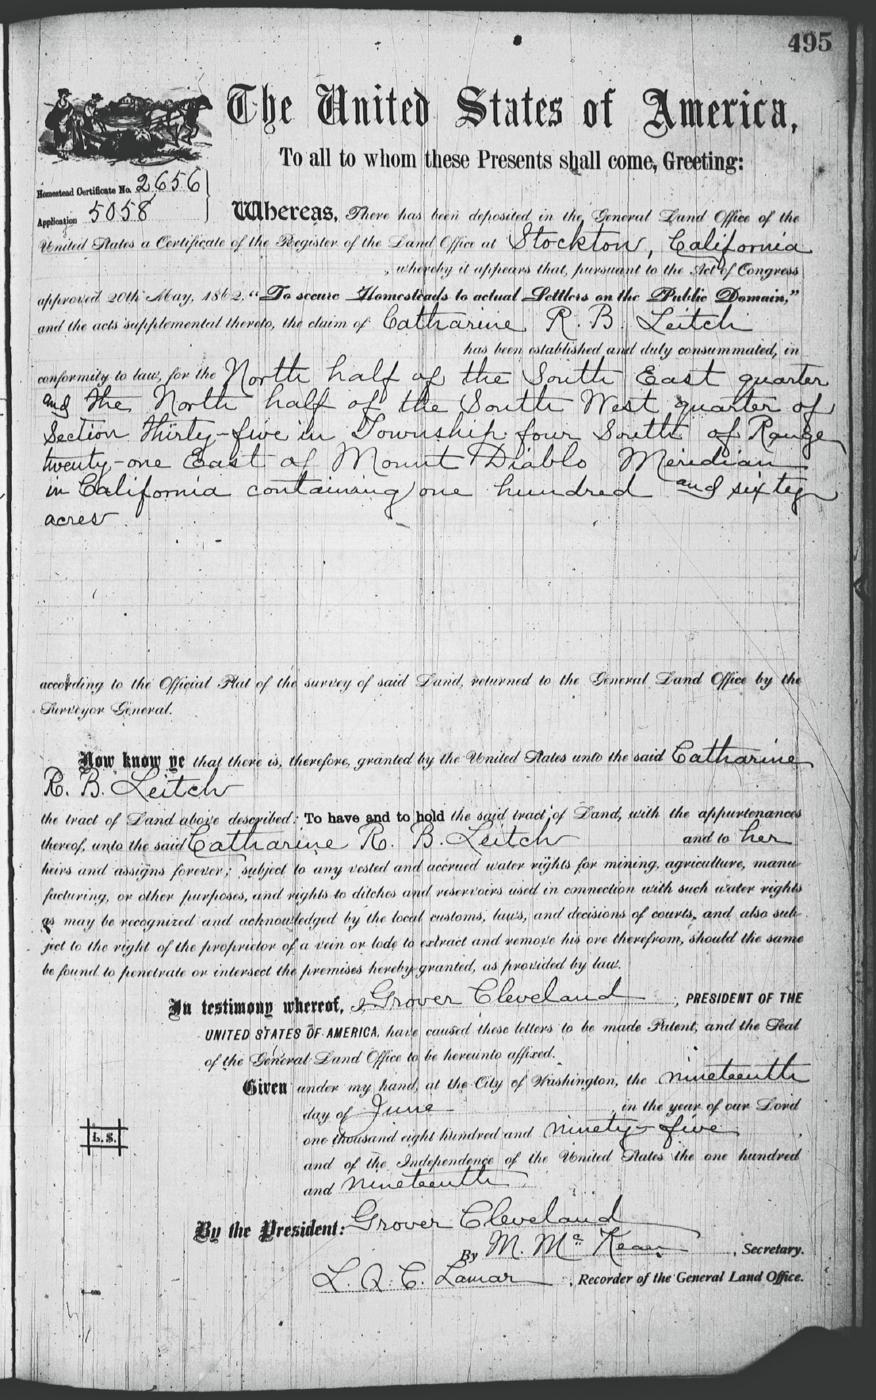 495
The United States of America,
To all to whom these Presents shall come, Greeting:
Homestead Certificate No. 2656
Application 5058
Whereas, There has been deposited in the General Land Office of the
United States a Certificate of the Register of the Land Office at Stockton, California
, whereby it appears that, pursuant to the Act of Congress
approved 20th May, 1862, "To secure Homesteads to actual Settlers on the Public Domain,"
and the acts supplemental thereto, the claim of Catharine R. B. Leitch
has been established and duly consummated, in
conformity to law, for the North half of the South East quarter
and the North half of the South West quarter of
Section thirty-five in Township four South of Range
twenty-one East of Mount Diablo Meridian
in California containing one hundred and sixty
acres
according to the Official Plat of the survey of said Land, returned to the General Land Office by the
Surveyor General.
Now know ye that there is, therefore, granted by the United States unto the said Catharine
R. B. Leitch
the tract of Land above described: To have and to hold the said tract of Land, with the appurtenances
thereof, unto the said Catharine R. B. Leitch and to her
heirs and assigns forever; subject to any vested and accrued water rights for mining, agriculture, manu-
facturing, or other purposes, and rights to ditches and reservoirs used in connection with such water rights
as may be recognized and acknowledged by the local customs, laws, and decisions of courts, and also sub-
ject to the right of the proprietor of a vein or lode to extract and remove his ore therefrom, should the same
be found to penetrate or intersect the premises hereby granted, as provided by law.
In testimony whereof, I Grover Cleveland, PRESIDENT OF THE
UNITED STATES OF AMERICA, have caused these letters to be made Patent, and the Seal
of the General Land Office to be hereunto affixed.
Given under my hand, at the City of Washington, the nineteenth
day of June in the year of our Lord
one thousand eight hundred and ninety-five,
L. S.
and of the Independence of the United States the one hundred
and nineteenth
By the President: Grover Cleveland
By M. McKean, Secretary.
L. Q. C. Lamar, Recorder of the General Land Office.